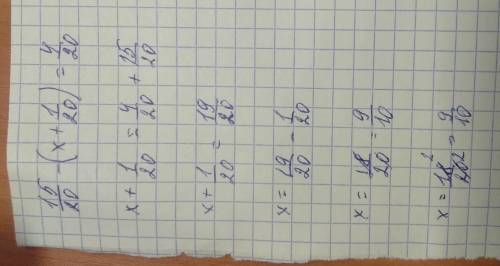 15/20 - (x + 1/20) = 4/20
x + 1/20 = 4/20 + 15/20
x + 1/20 = 19/20
x = 19/20 - 1/20
x = 18/20 = 9/10
x = 18/20 = 9/10